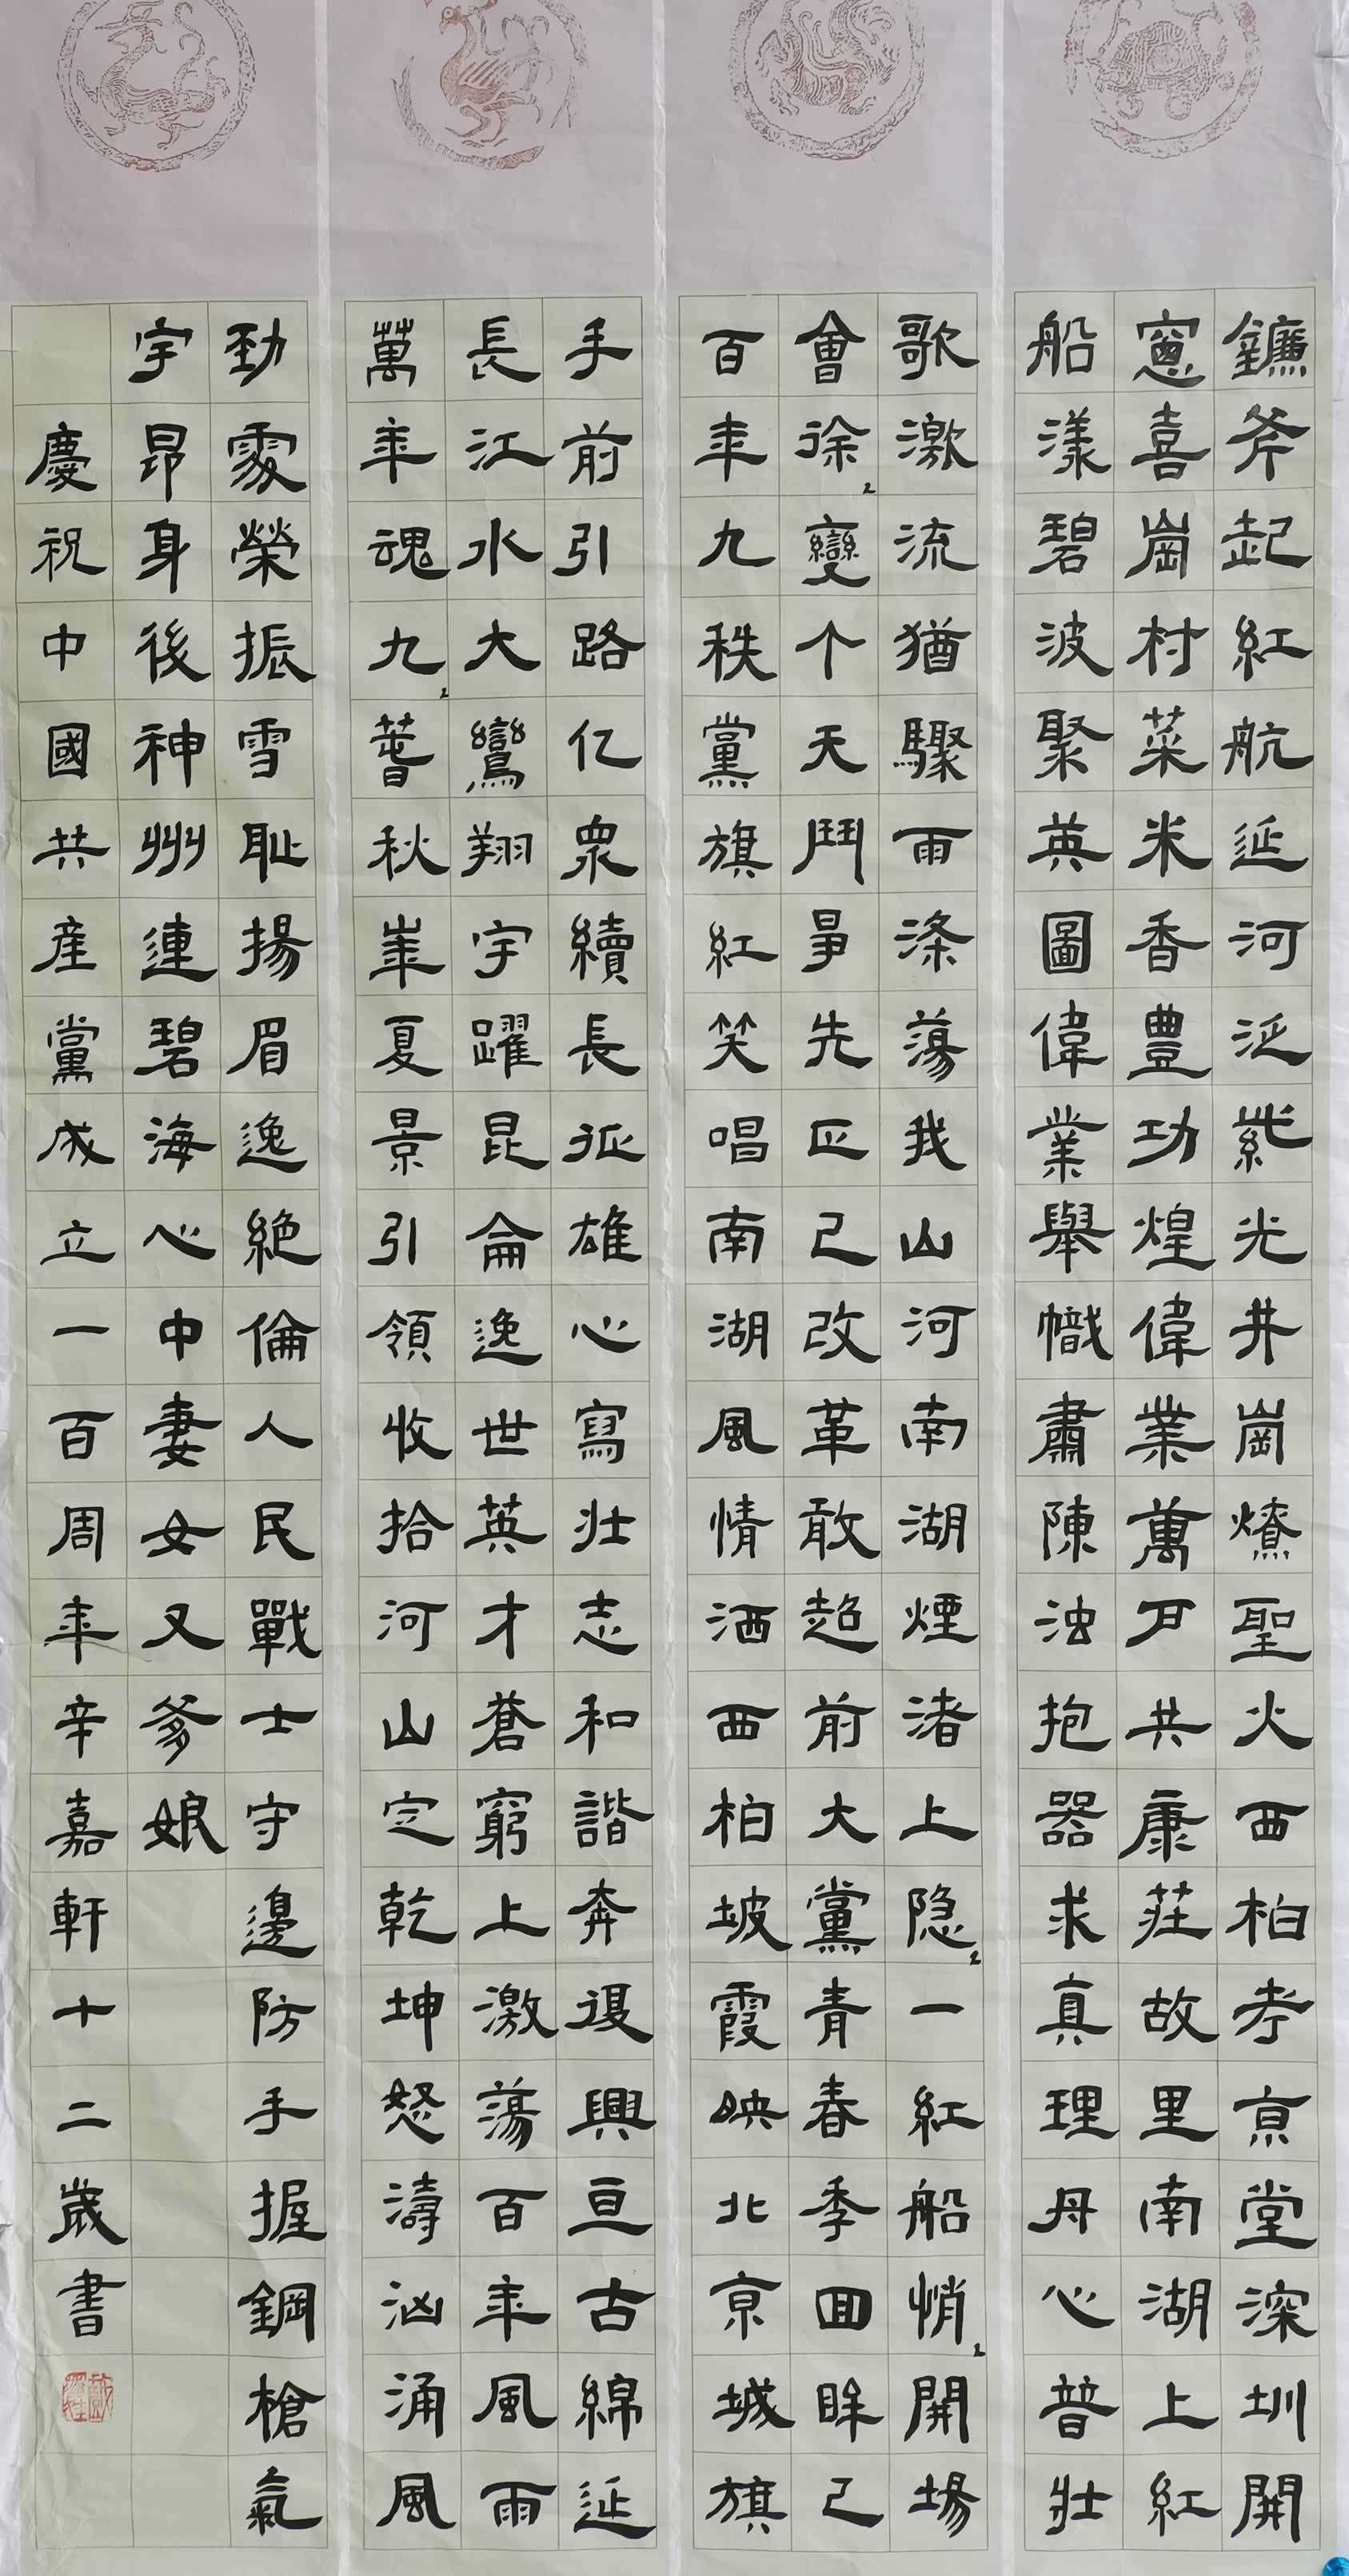 鐮斧起紅航延河泛紫光井崗燎聖火西柏考京堂深圳開
窻喜崗村菜米香豊功煌偉業萬戶共康莊故里南湖上紅
船漾碧波聚英圖偉業舉幟肅陳浊抱器求真理丹心普壯
歌激流猶驟雨滌蕩我山河南湖煙渚上隐〻一紅船悄〻開場
會徐〻變个天鬥爭先正己改革敢超前大黨青春季回眸已
百年九秩黨旗紅笑唱南湖風情洒西柏坡霞映北京城旗
手前引路亿眾續長征雄心寫壯志和諧奔復興亘古綿延
長江水大鸞翔宇躍昆侖逸世英才蒼窮上激蕩百年風雨
萬年魂九〻萻秋崋夏景引領收拾河山定乾坤怒濤汹涌風
勁霞榮振雪耻揚眉逸絕倫人民戰士守邊防手握鋼槍氣
宇昂身後神州連碧海心中妻女又爹娘
慶祝中國共産黨成立一百周年辛嘉軒十二歲書